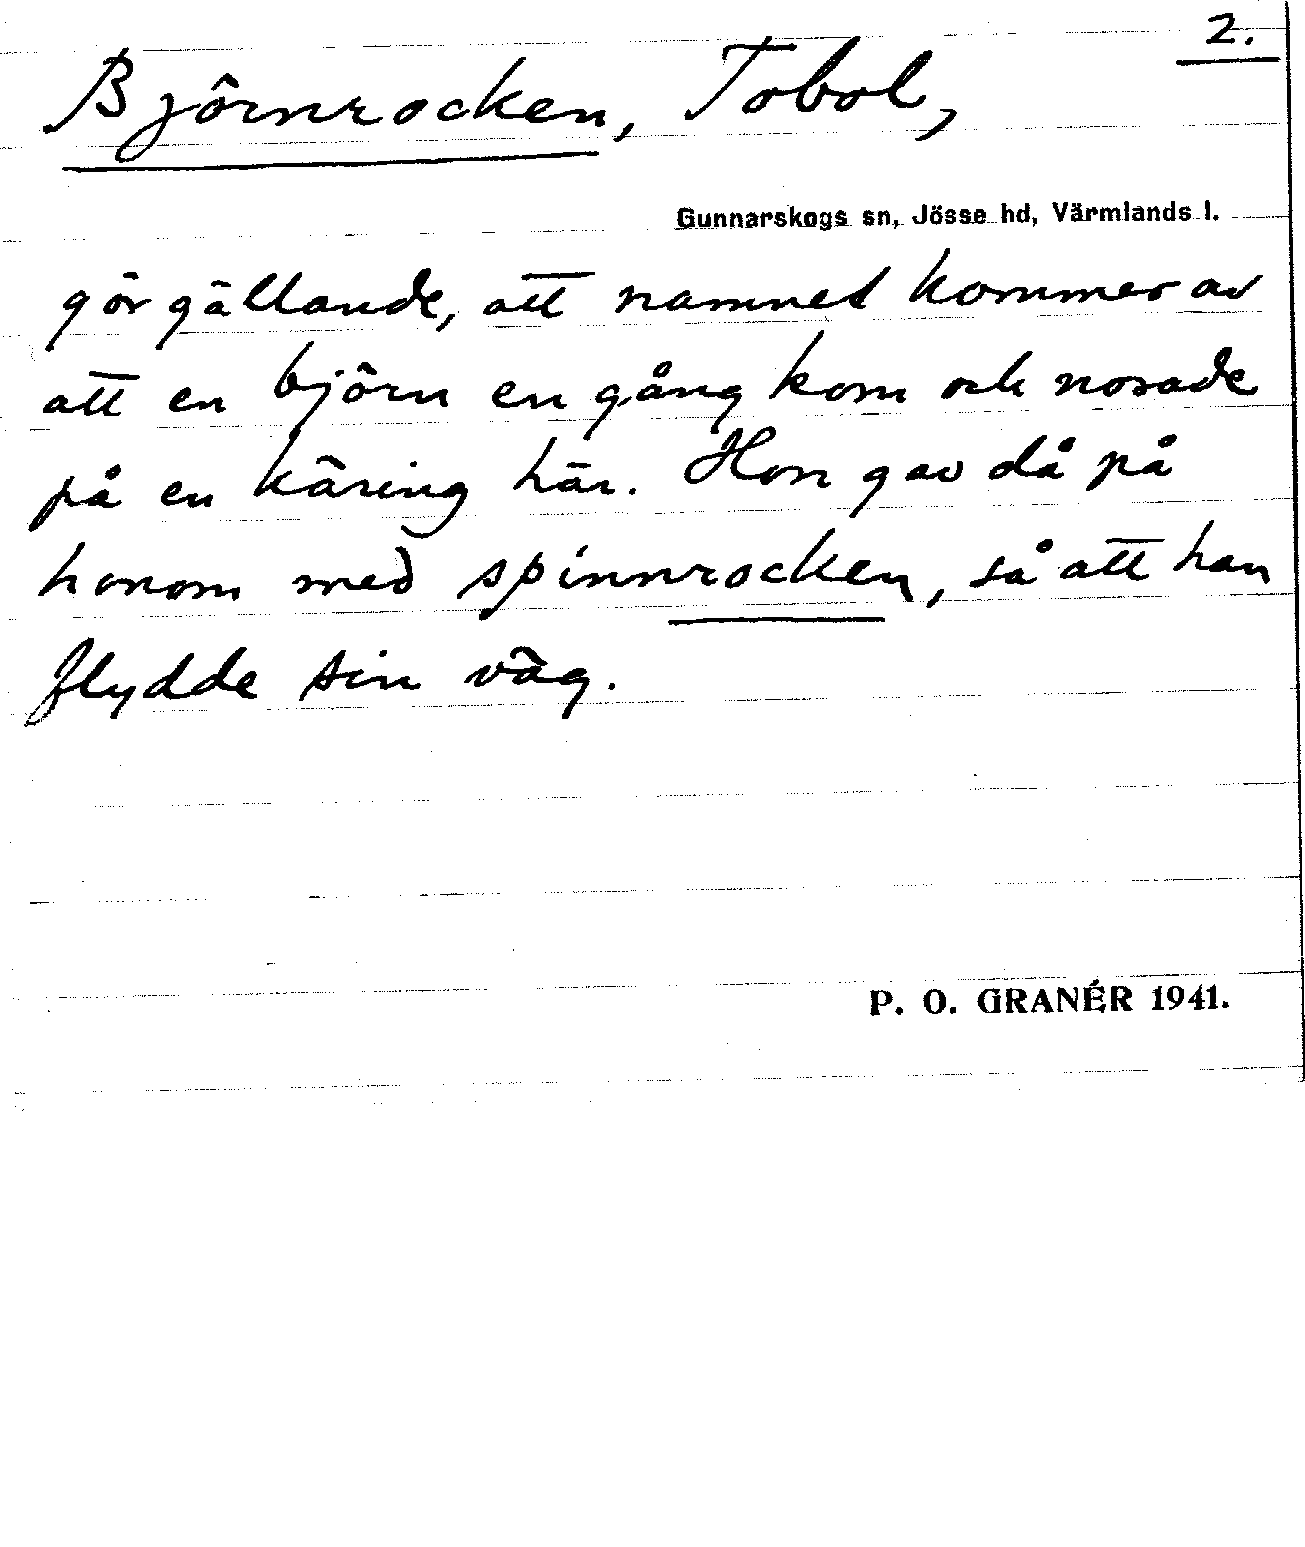 2.
Björnrocken, Tobol,
Gunnarskogs sn, Jösse hd, Värmlands l.
gör gällande, att namnet kommer av
att en björn en gång kom och nosade
på en käring här. Hon gav då på
honom med spinnrocken, så att han
flydde sin väg.
P. O. GRANÉR 1941.